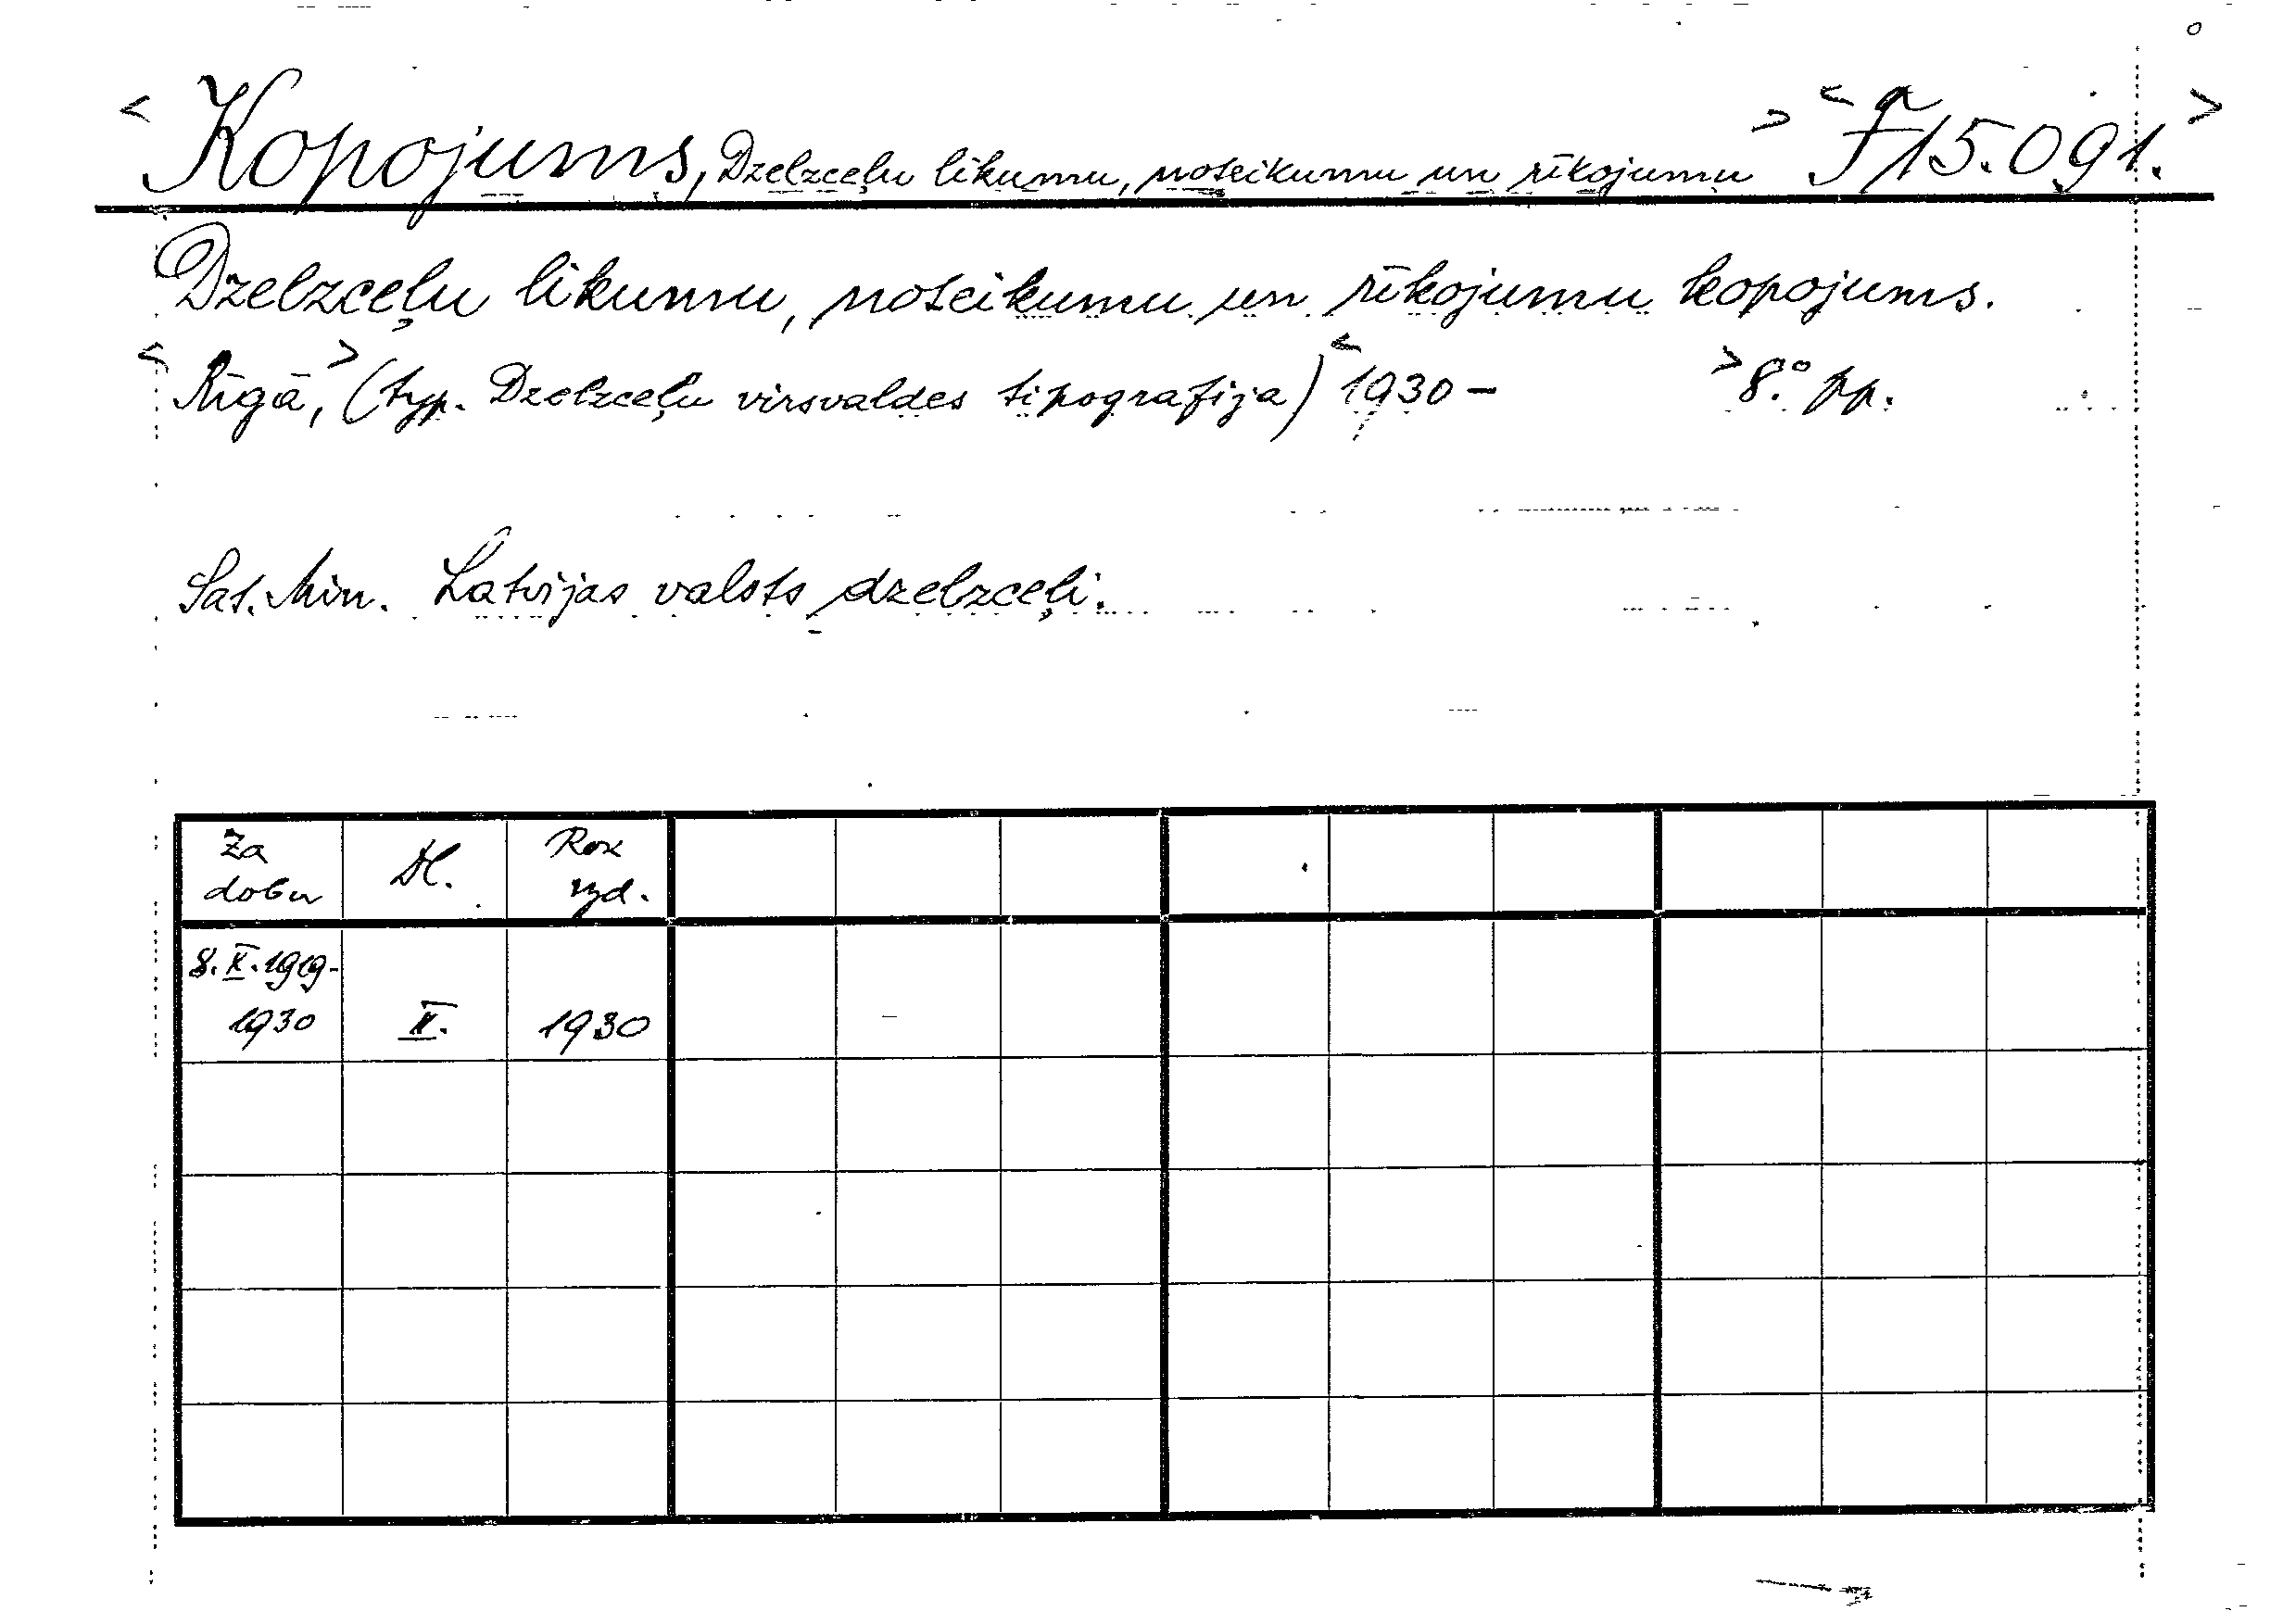 < Kopojums, Dzelzceļu likumu, noteikumu un rīkojumu > < f a 15.091. >
Dzelzceļu likumu, noteikumu un rīkojumu kopojums.
< Rīgā, > (typ. Dzelzceļu virsvaldes tipografija) < 1930 - > 8.° pp.
Sat. Min. Latvijas valsts dzelzceļi.
Za dobu Dl. Rok vyd.
8. X. 1919-
1930 II. 1930